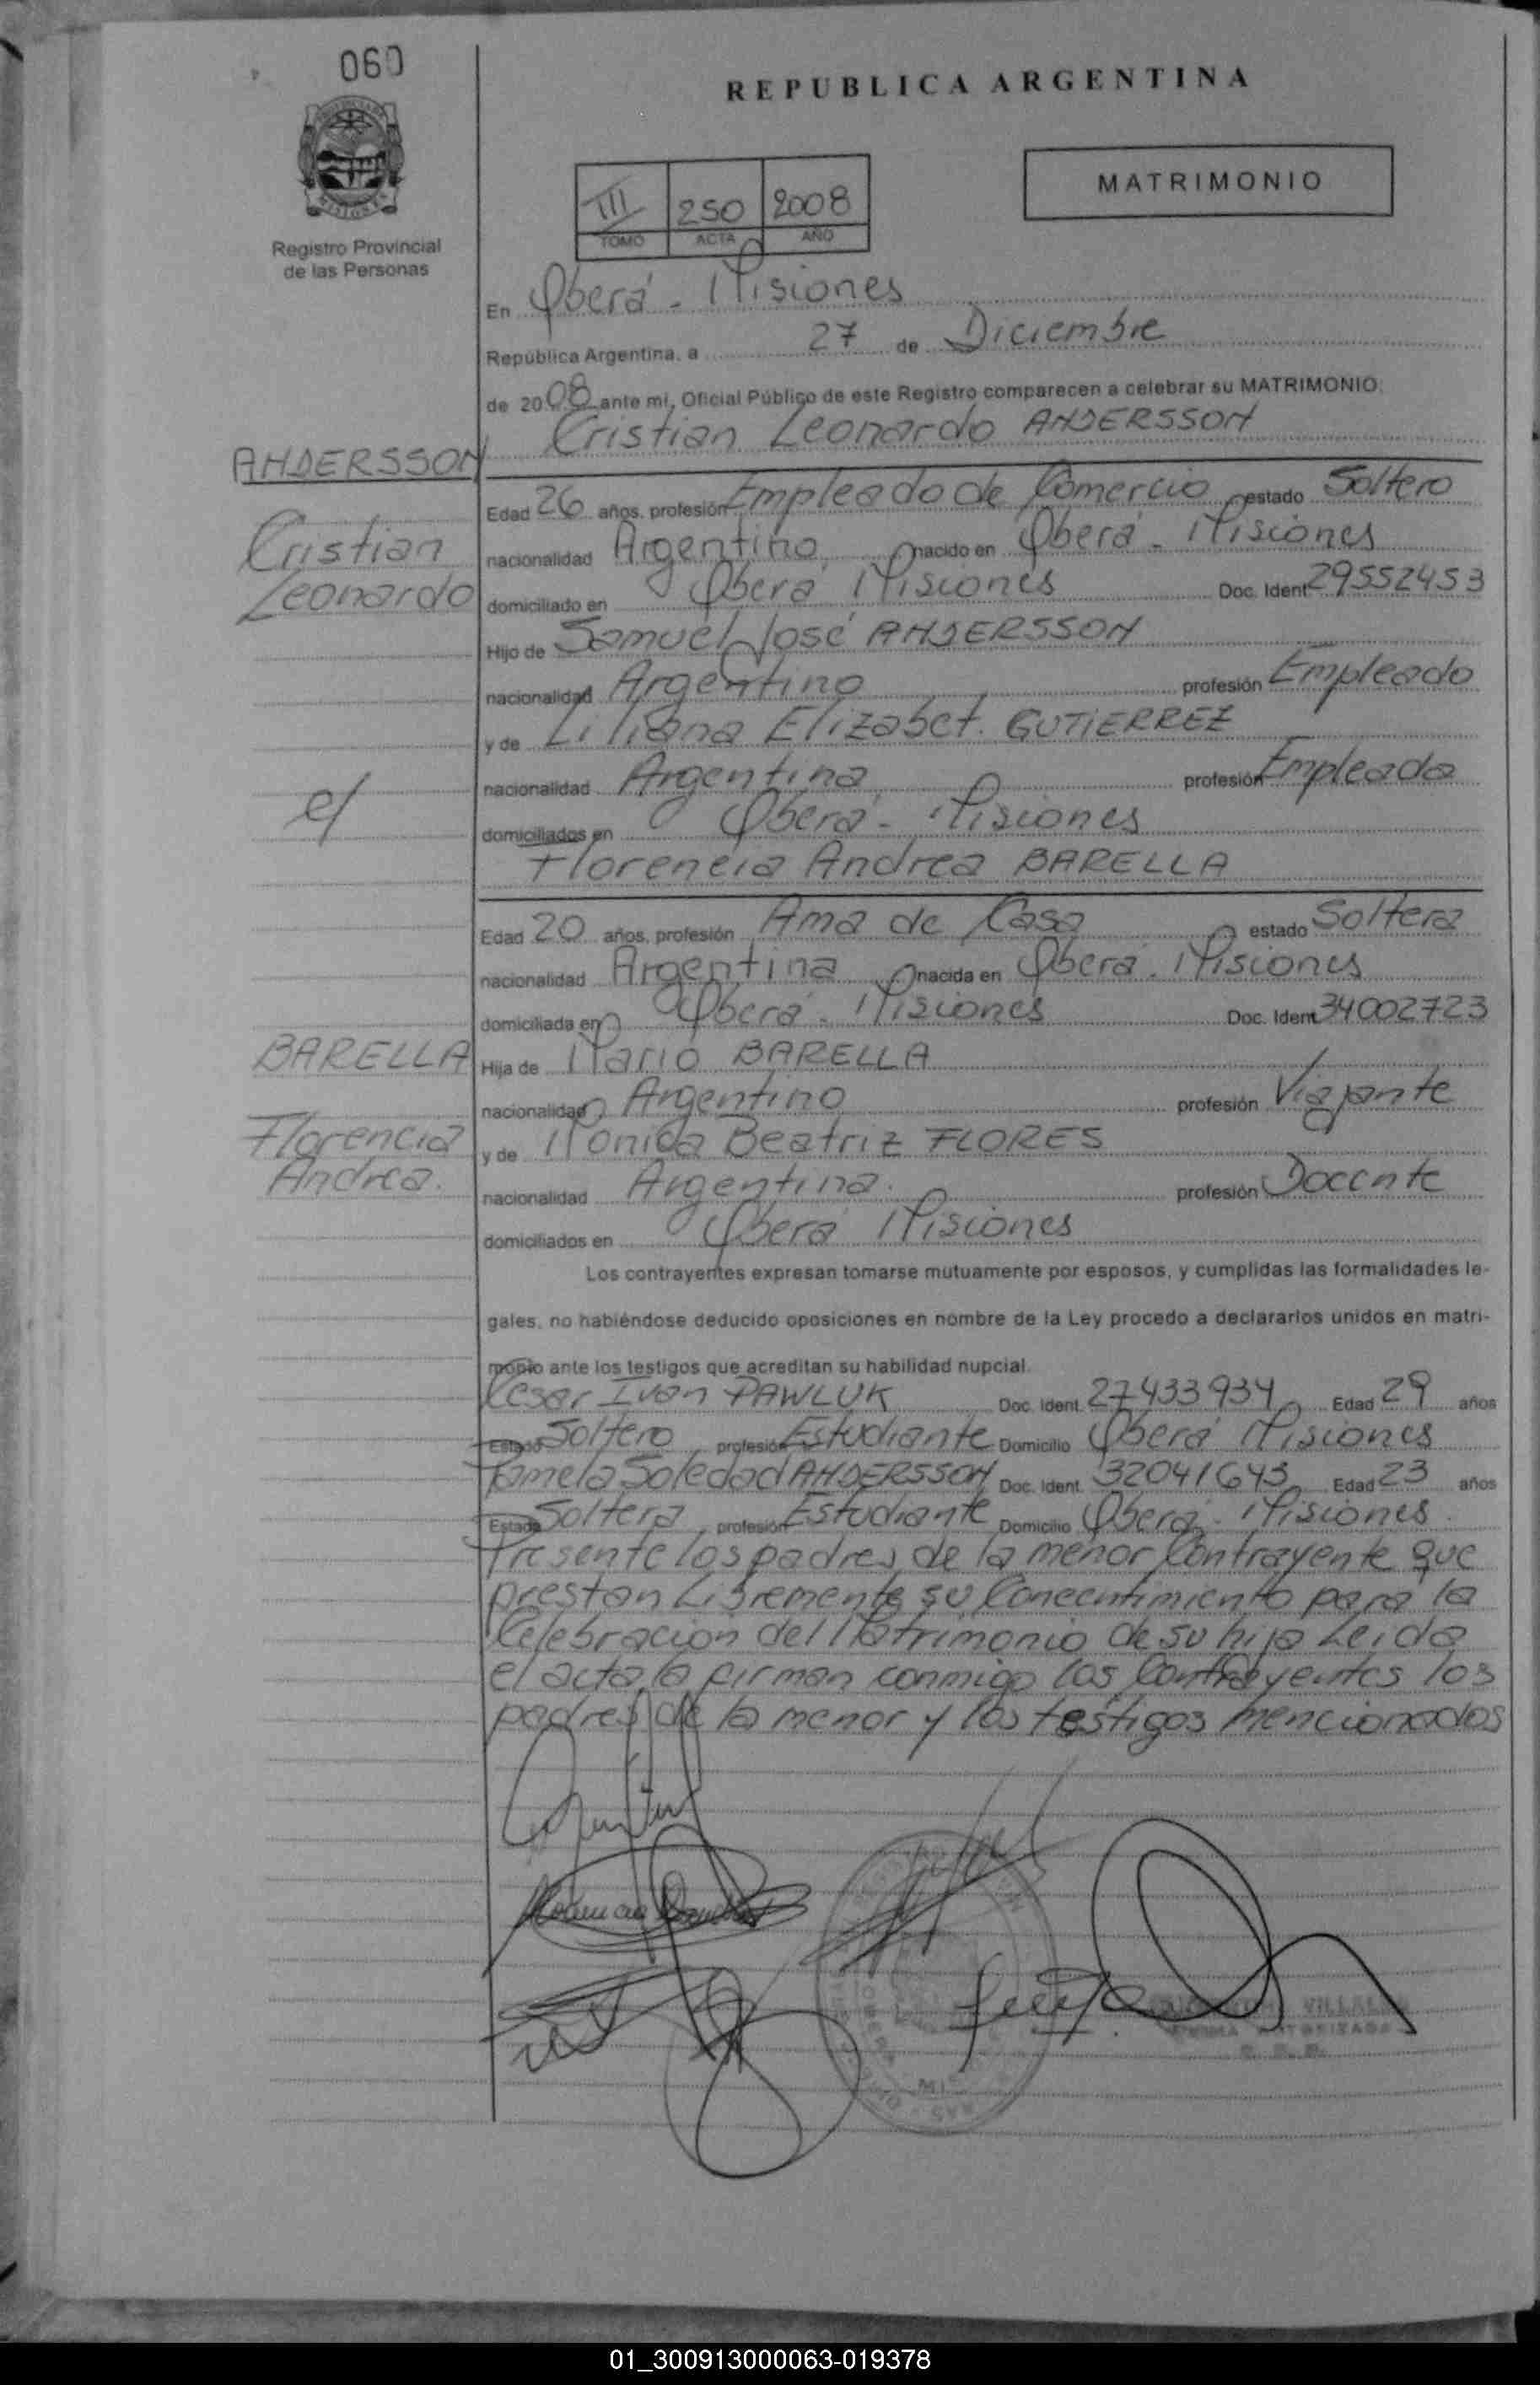 060
REPUBLICA ARGENTINA
MATRIMONIO
III 250 2008
TOMO ACTA AÑO
MISIONES
Registro Provincial
de las Personas
En Oberá - Misiones
República Argentina, a 27 de Diciembre
de 2008 ante mi, Oficial Público de este Registro comparecen a celebrar su MATRIMONIO:
Cristian Leonardo ANDERSSON
ANDERSSON
Edad 26 años, profesión Empleado de Comercio estado Soltero
Cristian
nacionalidad Argentino nacido en Oberá - Misiones
Leonardo
domiciliado en Oberá Misiones Doc. Ident 29552453
Hijo de Samuel José ANDERSSON
nacionalidad Argentino profesión Empleado
y de Liliana Elizabet. GUTIERREZ
nacionalidad Argentina profesión Empleada
c/
domiciliados en Oberá - Misiones
Florencia Andrea BARELLA
Edad 20 años, profesión Ama de Casa estado Soltera
nacionalidad Argentina nacida en Oberá - Misiones
domiciliada en Oberá - Misiones Doc. Ident 34002723
BARELLA
Hija de Mario BARELLA
nacionalidad Argentino profesión Viajante
Florencia
y de Monica Beatriz FLORES
Andrea.
nacionalidad Argentina. profesión Docente
domiciliados en Oberá Misiones
Los contrayentes expresan tomarse mutuamente por esposos, y cumplidas las formalidades le-
gales, no habiéndose deducido oposiciones en nombre de la Ley procedo a declararlos unidos en matri-
monio ante los testigos que acreditan su habilidad nupcial.
Cesar Ivan PAWLUK Doc. Ident. 27433934 Edad 29 años
Estado Soltero profesión Estudiante Domicilio Oberá Misiones
Pamela Soledad ANDERSSON Doc. Ident. 32041643 Edad 23 años
Estado Soltera profesión Estudiante Domicilio Oberá - Misiones.
Presente los padres de la menor Contrayente que
prestan Libremente su Concentimiento para la
Celebracion del Matrimonio de su hija Leida
el acta la firman conmigo los Contrayentes los
padres de la menor y los testigos mencionados
VILLALBA
01_300913000063-019378